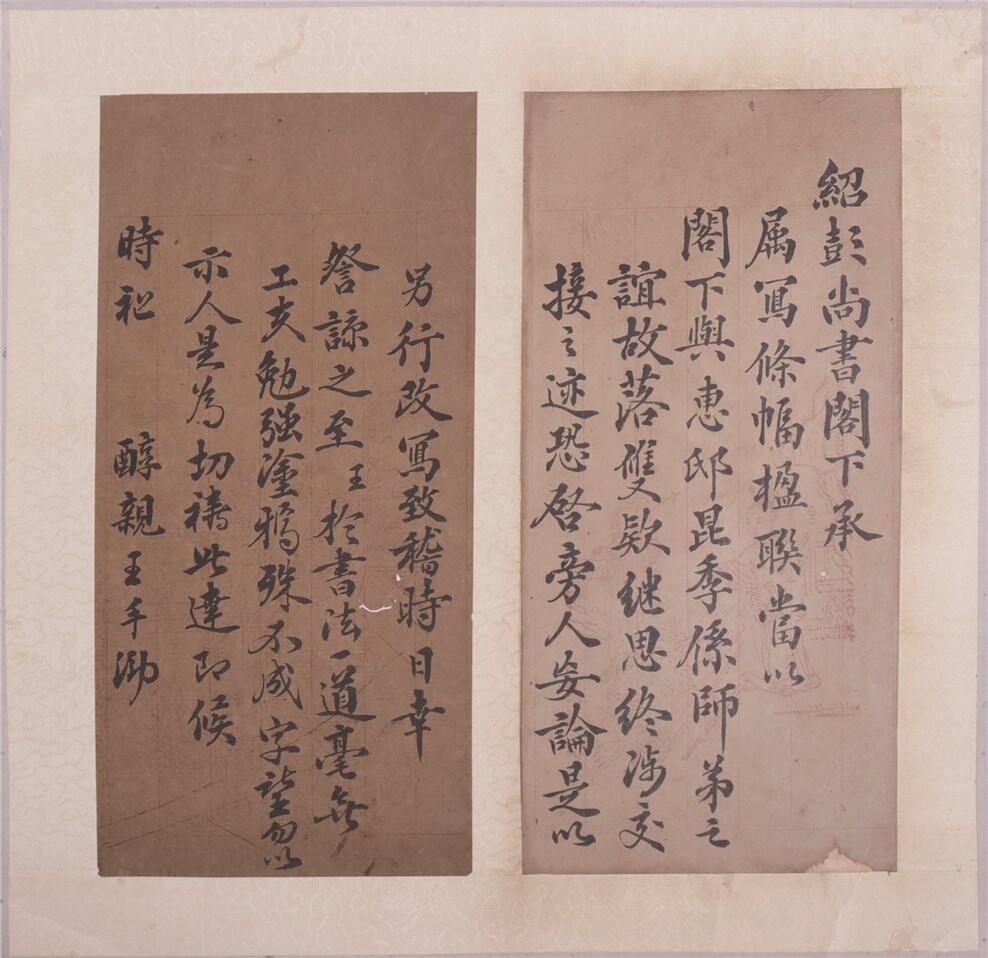 紹彭尚書閣下承
属寫條幅楹聯當以
閣下與惠邸昆季係師弟之
誼故落雙款繼思終涉交
接之迹恐啓旁人妄論是以
另行改寫致稽時日幸
詧諒之至王於書法一道毫無
工夫勉强塗鴉殊不成字望勿以
示人是為切禱此達即候
時祉 醇親王手泐